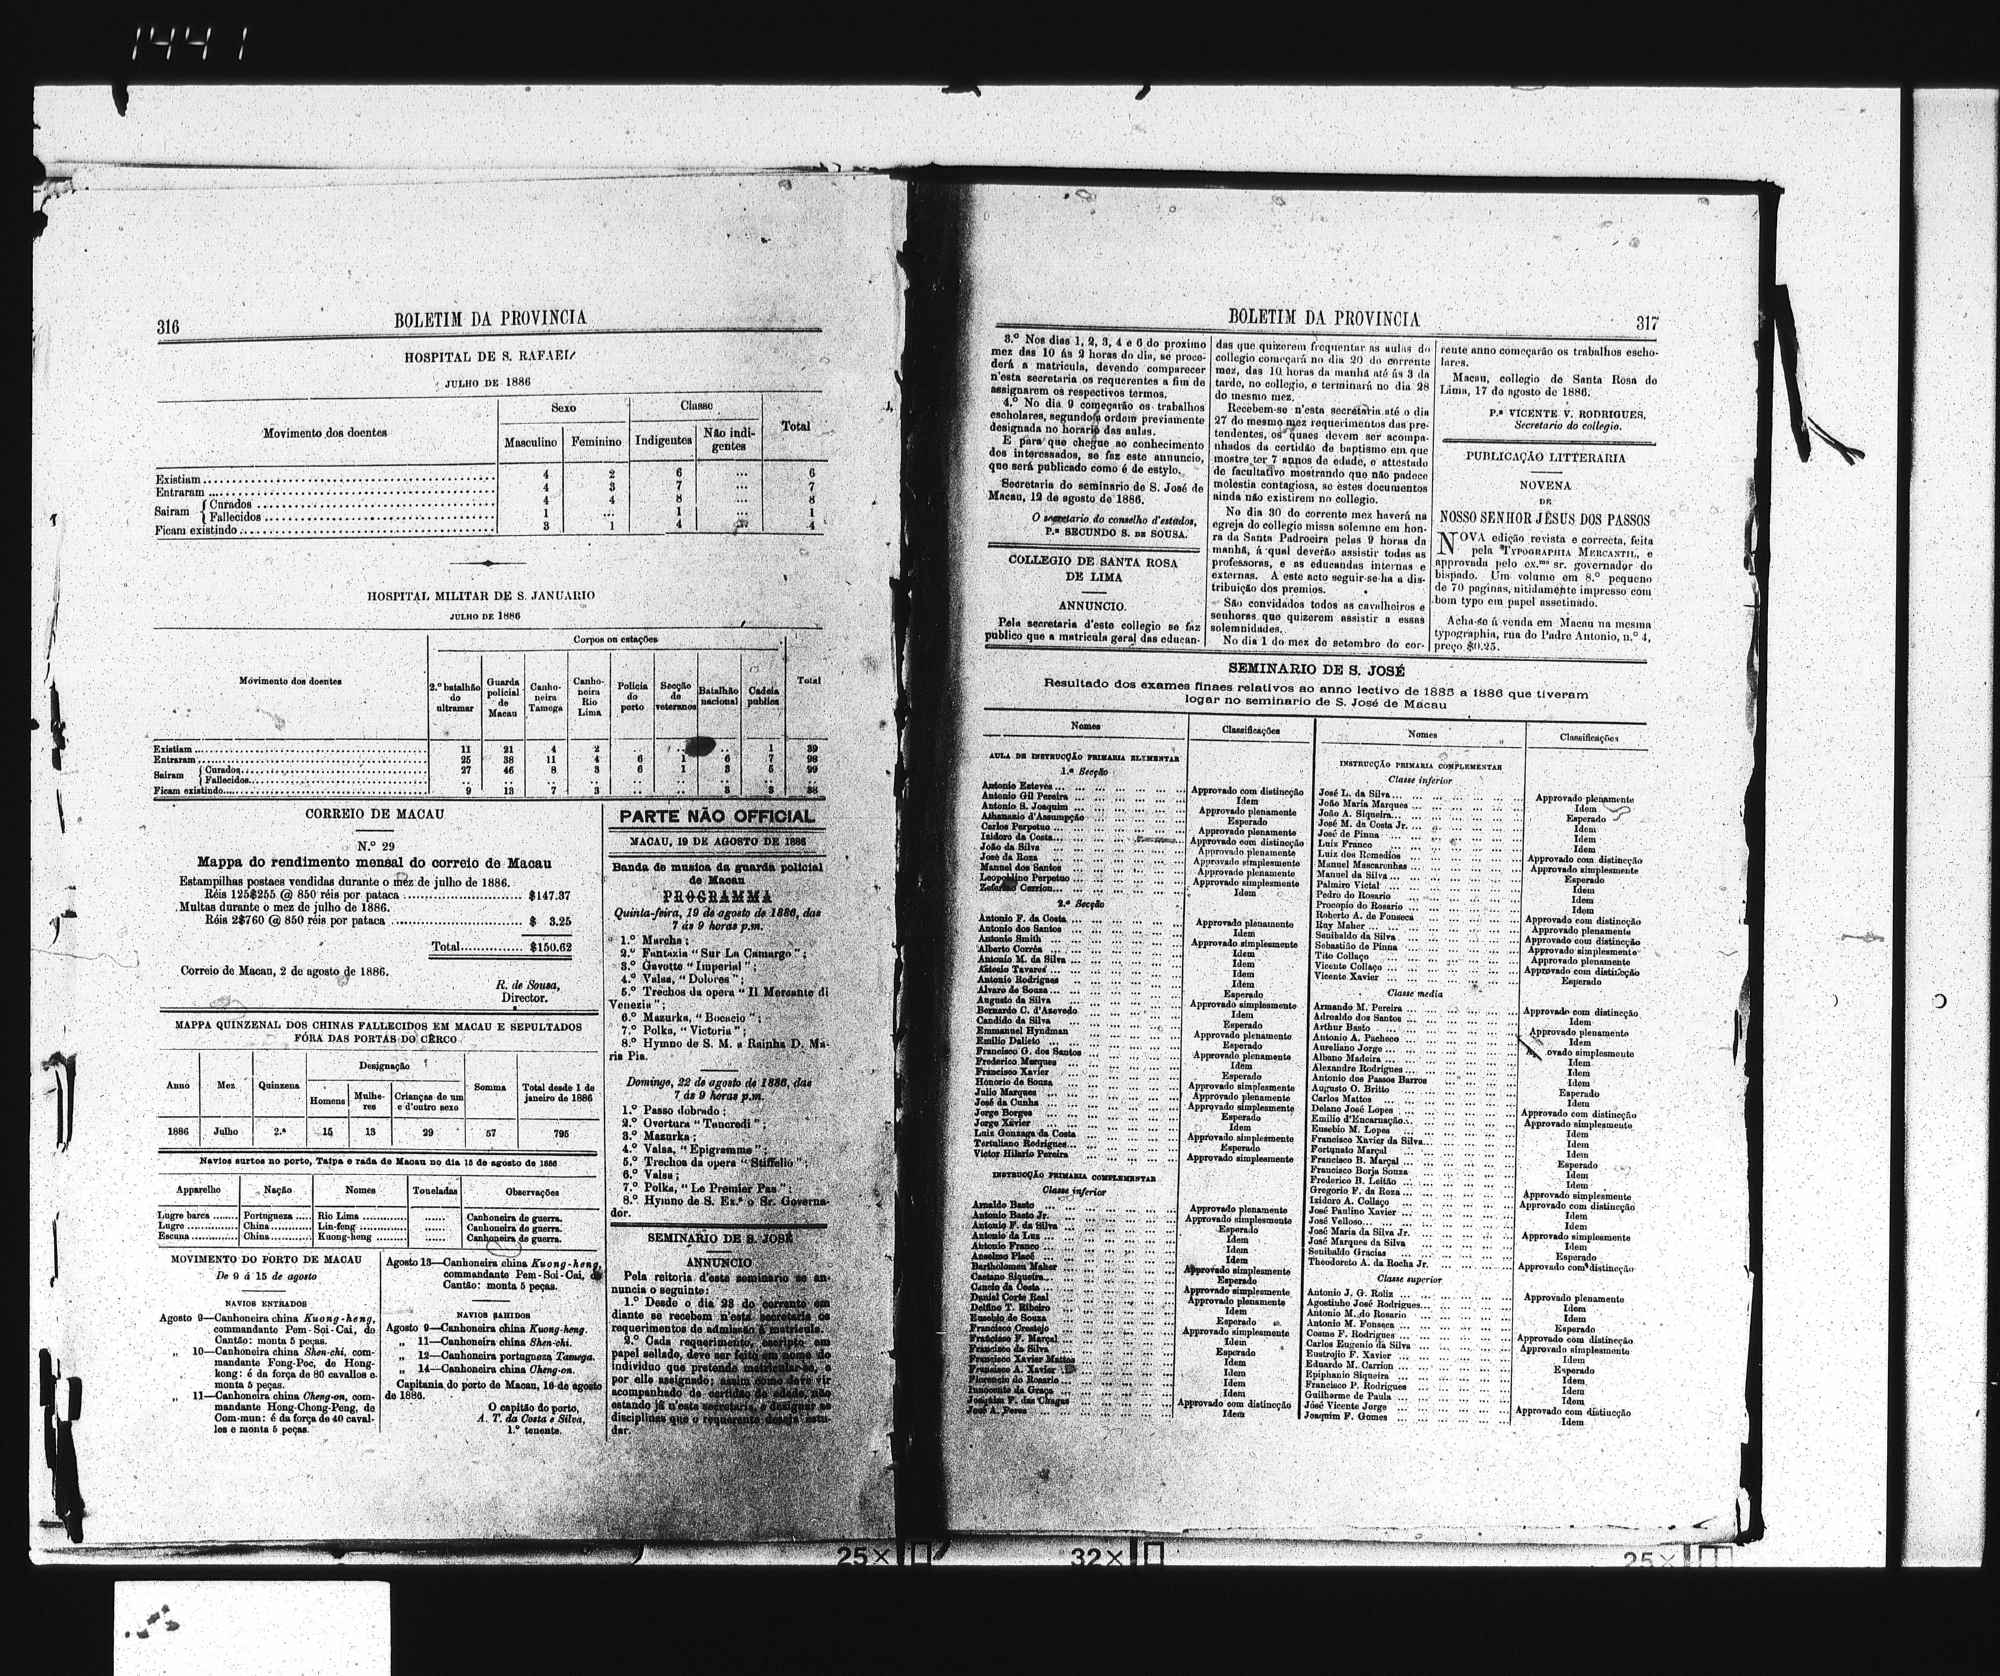 1441
316
BOLETIM DA PROVINCIA
HOSPITAL DE S. RAFAEL
JULHO DE 1886
Movimento dos doentes
Sexo
Classe
Total
Masculino
Feminino
Indigentes
Não indi-
gentes
Existiam 4 2 6 ... 6
Entraram 4 3 7 ... 7
Sairam { Curados 4 4 8 ... 8
{ Fallecidos 1 ... 1 ... 1
Ficam existindo 3 1 4 4
HOSPITAL MILITAR DE S. JANUARIO
JULHO DE 1886
Movimento dos doentes
Corpos ou estações
2.º batalhão do ultramar
Guarda policial de Macau
Canhoneira Tamega
Canhoneira Rio Lima
Policia do porto
Secção de veteranos
Batalhão nacional
Cadeia publica
Total
Existiam 11 21 4 2 .. .. .. 1 39
Entraram 25 38 11 4 6 1 6 7 98
Sairam { Curados 27 46 8 3 6 1 3 5 99
{ Fallecidos .. .. .. .. .. .. .. .. ..
Ficam existindo 9 13 7 3 .. .. 3 3 38
CORREIO DE MACAU
N.º 29
Mappa do rendimento mensal do correio de Macau
Estampilhas postaes vendidas durante o mez de julho de 1886.
Réis 125$255 @ 850 réis por pataca $147.37
Multas durante o mez de julho de 1886.
Réis 2$760 @ 850 réis por pataca $ 3.25
Total $150.62
Correio de Macau, 2 de agosto de 1886.
R. de Sousa,
Director.
MAPPA QUINZENAL DOS CHINAS FALLECIDOS EM MACAU E SEPULTADOS
FÓRA DAS PORTAS DO CÊRCO
Anno
Mez
Quinzena
Designação
Homens
Mulhe-
res
Crianças de um
e d'outro sexo
Somma
Total desde 1 de
janeiro de 1886
1886 Julho 2.ª 15 13 29 57 795
Navios surtos no porto, Taipa e rada de Macau no dia 15 de agosto de 1886
Apparelho Nação Nomes Toneladas Observações
Lugre barca Portugueza Rio Lima ...... Canhoneira de guerra.
Lugre China Lin-feng ...... Canhoneira de guerra.
Escuna China Kuong-heng ...... Canhoneira de guerra.
MOVIMENTO DO PORTO DE MACAU
De 9 á 15 de agosto
NAVIOS ENTRADOS
Agosto 9—Canhoneira china Kuong-heng,
commandante Pem-Soi-Cai, de
Cantão: monta 5 peças.
„ 10—Canhoneira china Shen-chi, com-
mandante Fong-Poc, de Hong-
kong: é da força de 80 cavallos e
monta 5 peças.
„ 11—Canhoneira china Cheng-on, com-
mandante Hong-Chong-Peng, de
Com-mun: é da força de 40 caval-
los e monta 5 peças.
Agosto 13—Canhoneira china Kuong-heng,
commandante Pem-Soi-Cai, de
Cantão: monta 5 peças.
NAVIOS SAHIDOS
Agosto 9—Canhoneira china Kuong-heng.
„ 11—Canhoneira china Shen-chi.
„ 12—Canhoneira portugueza Tamega.
„ 14—Canhoneira china Cheng-on.
Capitania do porto de Macau, 16 de agosto
de 1886.
O capitão do porto,
A. T. da Costa e Silva,
1.º tenente.
PARTE NÃO OFFICIAL
MACAU, 19 DE AGOSTO DE 1886
Banda de musica da guarda policial
de Macau
PROGRAMMA
Quinta-feira, 19 de agosto de 1886, das
7 ás 9 horas p.m.
1.º Marcha;
2.º Fantazia "Sur La Camargo";
3.º Gavotte "Imperial";
4.º Valsa, "Dolores";
5.º Trechos da opera "Il Mercante di
Venezia";
6.º Mazurka, "Bocacio";
7.º Polka, "Victoria";
8.º Hymno de S. M. a Rainha D. Ma-
ria Pia.
Domingo, 22 de agosto de 1886, das
7 ás 9 horas p.m.
1.º Passo dobrado;
2.º Overtura "Tancredi";
3.º Mazurka;
4.º Valsa, "Epigramme";
5.º Trechos da opera "Stiffelio";
6.º Valsa;
7.º Polka, "Le Premier Pas";
8.º Hymno de S. Ex.ª o Sr. Governa-
dor.
SEMINARIO DE S. JOSÉ
ANNUNCIO
Pela reitoria d'este seminario se an-
nuncia o seguinte:
1.º Desde o dia 23 do corrente em
diante se recebem n'esta secretaria os
requerimentos de admissão á matricula.
2.º Cada requerimento, escripto em
papel sellado, deve ser feito em nome do
individuo que pretende matricular-se, e
por elle assignado; assim como deve vir
acompanhado de certidão de edade, não
estando já n'esta secretaria, e designar as
disciplinas que o requerente deseja estu-
dar.
BOLETIM DA PROVINCIA
317
3.º Nos dias 1, 2, 3, 4 e 6 do proximo
mez das 10 ás 2 horas do dia, se proce-
derá a matricula, devendo comparecer
n'esta secretaria os requerentes a fim de
assignarem os respectivos termos.
4.º No dia 9 começarão os trabalhos
escholares, segundo a ordem previamente
designada no horario das aulas.
E para que chegue ao conhecimento
dos interessados, se faz este annuncio,
que será publicado como é de estylo.
Secretaria do seminario de S. José de
Macau, 12 de agosto de 1886.
O secretario do conselho d'estudos,
P.e SECUNDO S. DE SOUSA.
COLLEGIO DE SANTA ROSA
DE LIMA
ANNUNCIO.
Pela secretaria d'este collegio se faz
publico que a matricula geral das educan-
das que quizerem frequentar as aulas do
collegio começará no dia 20 do corrente
mez, das 10 horas da manhã até ás 3 da
tarde, no collegio, e terminará no dia 28
do mesmo mez.
Recebem-se n'esta secretaria até o dia
27 do mesmo mez requerimentos das pre-
tendentes, os quaes devem ser acompa-
nhados da certidão de baptismo em que
mostre ter 7 annos de edade, e attestado
de facultativo mostrando que não padece
molestia contagiosa, se estes documentos
ainda não existirem no collegio.
No dia 30 do corrente mez haverá na
egreja do collegio missa solemne em hon-
ra da Santa Padroeira pelas 9 horas da
manhã, á qual deverão assistir todas as
professoras, e as educandas internas e
externas. A este acto seguir-se-ha a dis-
tribuição dos premios.
São convidados todos os cavalheiros e
senhoras que quizerem assistir a essas
solemnidades.
No dia 1 do mez de setembro do cor-
rente anno começarão os trabalhos escho-
lares.
Macau, collegio de Santa Rosa de
Lima, 17 de agosto de 1886.
P.e VICENTE V. RODRIGUES,
Secretario do collegio.
PUBLICAÇÃO LITTERARIA
NOVENA
DE
NOSSO SENHOR JESUS DOS PASSOS
NOVA edição revista e correcta, feita
pela TYPOGRAPHIA MERCANTIL, e
approvada pelo ex.mo sr. governador do
bispado. Um volume em 8.º pequeno
de 70 paginas, nitidamente impresso com
bom typo em papel assetinado.
Acha-se á venda em Macau na mesma
typographia, rua do Padre Antonio, n.º 4,
preço $0.25.
SEMINARIO DE S. JOSÉ
Resultado dos exames finaes relativos ao anno lectivo de 1885 a 1886 que tiveram
logar no seminario de S. José de Macau
Nomes
Classificações
AULA DE INSTRUCÇÃO PRIMARIA ELEMENTAR
1.ª Secção
Antonio Esteves Approvado com distincção
Antonio Gil Pereira Idem
Antonio S. Joaquim Approvado plenamente
Athanasio d'Assumpção Esperado
Carlos Perpetuo Approvado plenamente
Izidoro da Costa Approvado com distincção
João da Silva Approvado plenamente
José da Roza Approvado simplesmente
Manuel dos Santos Approvado plenamente
Leopoldino Perpetuo Approvado simplesmente
Zeferino Carrion Idem
2.ª Secção
Antonio F. da Costa Approvado plenamente
Antonio dos Santos Idem
Antonio Smith Approvado simplesmente
Alberto Corrêa Idem
Antonio M. da Silva Idem
Antonio Tavares Idem
Antonio Rodrigues Idem
Alvaro de Souza Esperado
Augusto da Silva Approvado simplesmente
Bernardo C. d'Azevedo Idem
Candido da Silva Esperado
Emmanuel Hyndman Approvado plenamente
Emilio Dalieto Esperado
Francisco G. dos Santos Approvado plenamente
Frederico Marques Idem
Francisco Xavier Esperado
Honorio de Souza Approvado simplesmente
Julio Marques Approvado plenamente
José da Cunha Approvado simplesmente
Jorge Borges Esperado
Jorge Xavier Idem
Luiz Gonzaga da Costa Approvado simplesmente
Tertuliano Rodrigues Esperado
Victor Hilario Pereira Approvado simplesmente
INSTRUCÇÃO PRIMARIA COMPLEMENTAR
Classe inferior
Arnaldo Basto Approvado plenamente
Antonio Basto Jr. Approvado simplesmente
Antonio F. da Silva Esperado
Antonio da Luz Idem
Antonio Franco Idem
Anselmo Placé Idem
Bartholomeu Maher Approvado simplesmente
Caetano Siqueira Esperado
Cancio da Costa Approvado simplesmente
Daniel Corte Real Approvado plenamente
Delfino T. Ribeiro Idem
Eusebio de Souza Esperado
Francisco Crestejo Approvado simplesmente
Francisco F. Marçal Idem
Francisco da Silva Esperado
Francisco Xavier Mattos Idem
Francisco A. Xavier Idem
Florencio do Rosario Idem
Innocente da Graça Idem
Joaquim F. das Chagas Approvado com distincção
José A. Peres Idem
Nomes
Classificações
INSTRUCÇÃO PRIMARIA COMPLEMENTAR
Classe inferior
José L. da Silva Approvado plenamente
João Maria Marques Idem
João A. Siqueira Esperado
José M. da Costa Jr. Idem
José de Pinna Idem
Luiz Franco Idem
Luiz dos Remedios Approvado com distincção
Manuel Mascarenhas Approvado simplesmente
Manuel da Silva Esperado
Palmiro Victal Idem
Pedro do Rosario Idem
Procopio do Rosario Idem
Roberto A. de Fonseca Approvado com distincção
Ruy Maher Approvado plenamente
Senibaldo da Silva Approvado com distincção
Sebastião de Pinna Approvado simplesmente
Tito Collaço Approvado plenamente
Vicente Collaço Approvado com distincção
Vicente Xavier Esperado
Classe media
Armando M. Pereira Approvado com distincção
Adroaldo dos Santos Idem
Arthur Basto Approvado plenamente
Antonio A. Pacheco Idem
Aureliano Jorge Approvado simplesmente
Albano Madeira Idem
Alexandre Rodrigues Idem
Antonio dos Passos Barros Idem
Augusto O. Britto Esperado
Carlos Mattos Idem
Delano José Lopes Approvado com distincção
Emilio d'Encarnação Approvado simplesmente
Eusebio M. Lopes Idem
Francisco Xavier da Silva Idem
Fortunato Marçal Idem
Francisco B. Marçal Esperado
Francisco Borja Souza Idem
Frederico B. Leitão Idem
Gregorio F. da Roza Approvado simplesmente
Izidoro A. Collaço Approvado com distincção
José Paulino Xavier Idem
José Velloso Idem
José Maria da Silva Jr. Approvado simplesmente
José Marques da Silva Idem
Senibaldo Gracias Esperado
Theodoreto A. da Rocha Jr. Approvado com distincção
Classe superior
Antonio J. G. Roliz Approvado plenamente
Agostinho José Rodrigues Idem
Antonio M. do Rosario Idem
Antonio M. Fonseca Esperado
Cosme F. Rodrigues Approvado com distincção
Carlos Eugenio da Silva Approvado simplesmente
Eustrojio F. Xavier Idem
Eduardo M. Carrion Esperado
Epiphanio Siqueira Idem
Francisco P. Rodrigues Idem
Guilherme de Paula Idem
José Vicente Jorge Approvado com distincção
Joaquim F. Gomes Idem
25×
32×
25×